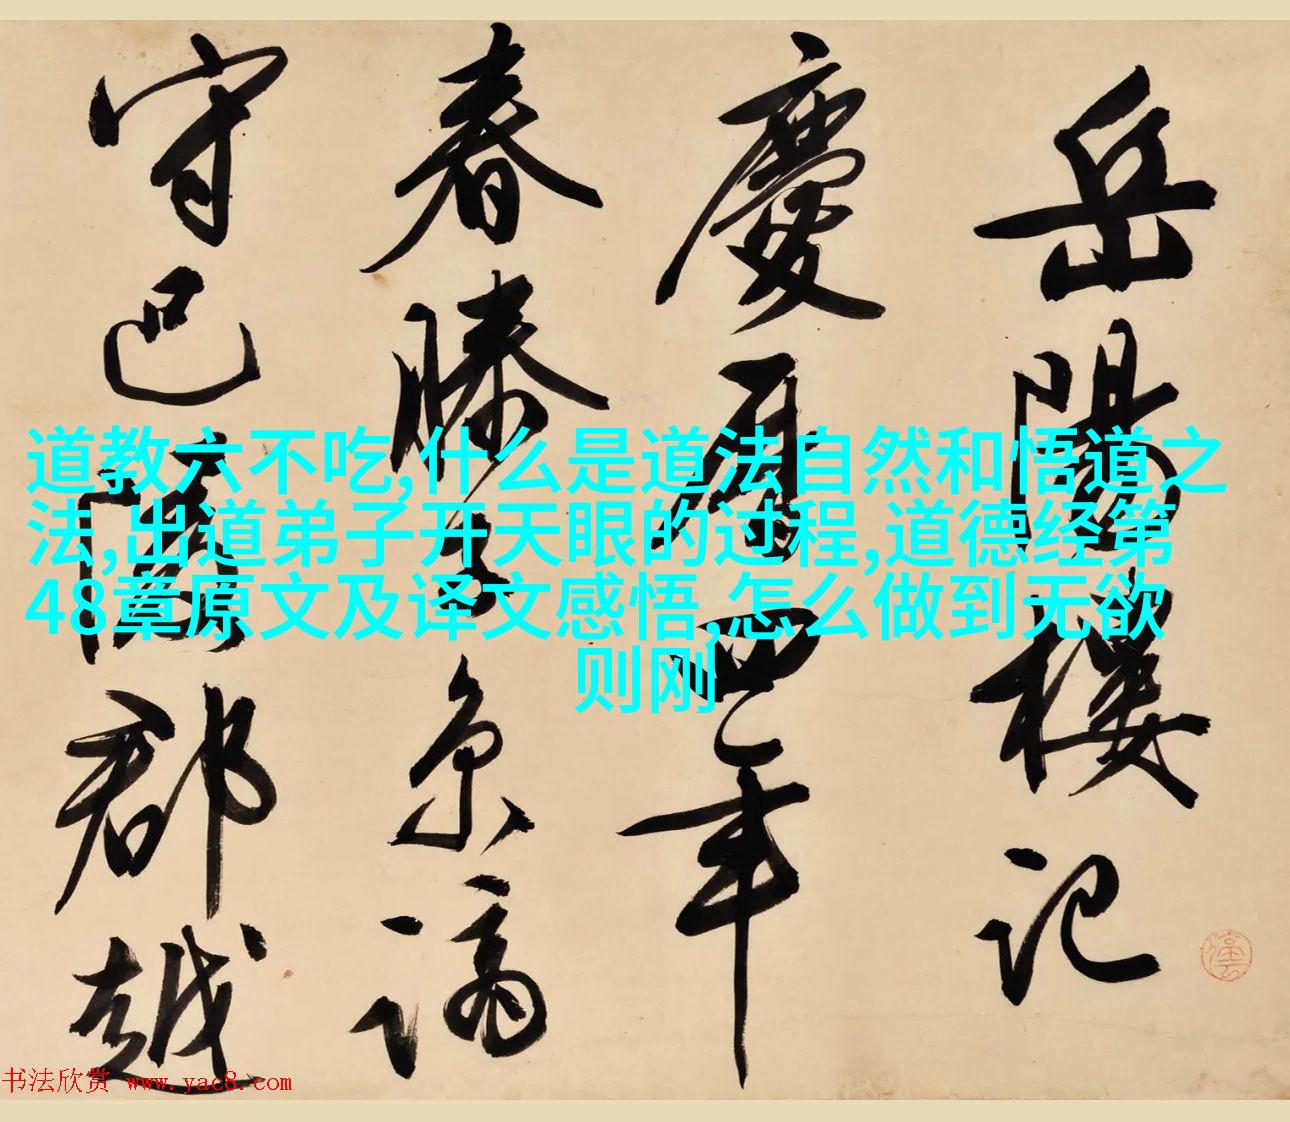 岳陽樓記
慶曆四年
春滕子京謫
守巴陵郡越
道教六不吃,什么是道法自然和悟道之
法,出道弟子开天眼的过程,道德经第
48章原文及译文感悟,怎么做到无欲
则刚
书法欣赏 www.yac8.com